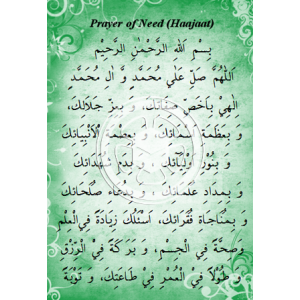 Prayer of Need (Haajaat)
بِسْمِ اللّٰهِ الرَّحْمٰنِ الرَّحِيْمِ
اَللّٰهُمَّ صَلِّ عَلٰي مُحَمَّدٍ وَّ اٰلِ مُحَمَّدٍ
اِلٰهِيْ بِاَخَصِّ صِفَاتِكَ، وَ بِعِزِّ جَلَالِكَ،
وَ بِعَظَمَةِ اَسْمَائِكَ، وَ بِعِصْمَةِ اَنْبِيَائِكَ
وَ بِنُوْرِ اَوْلِيَائِكَ، وَ بِدَمِ شُهَدَائِكَ
وَ بِمِدَادِ عُلَمَائِكَ، وَ بِدُعَاءِ صُلَحَائِكَ
وَ بِمُنَاجَاةِ فُقَرَائِكَ، اَسْئَلُكَ زِيَادَةً فِيْ الْعِلْمِ
وَصِحَّةً فِيْ الْجِسْمِ، وَ بَرَكَةً فِيْ الرِّزْقِ
وَ طُوْلًا فِيْ الْعُمْرِ فِيْ طَاعَتِكَ، وَ تَوْبَةً